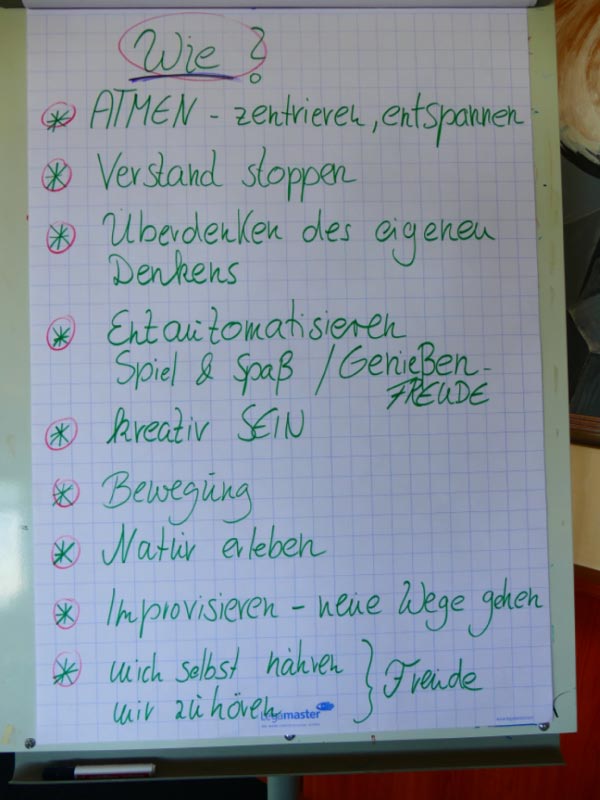 Wie?
* ATMEN - zentrieren, entspannen
* Verstand stoppen
* Überdenken des eigenen
Denkens
* Entautomatisieren
Spiel & Spaß / Genießen -
FREUDE
* kreativ SEIN
* Bewegung
* Natur erleben
* Improvisieren - neue Wege gehen
* mich selbst nähren
mir zuhören } Freude
Legamaster